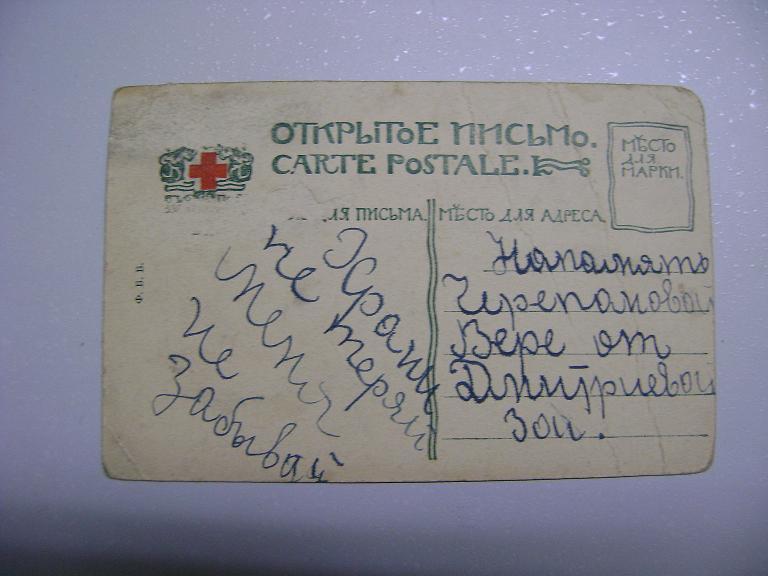 ОТКРЫТОЕ ПИСЬМО.
CARTE POSTALE.
МѢСТО
ДЛЯ
МАРКИ.
ЛЯ ПИСЬМА.
МѢСТО ДЛЯ АДРЕСА.
Ф. В. В.
Храни
не теряй
меня
не
забывай
Напамять
Черепановой
Вере от
Дмитриевой
Зои.